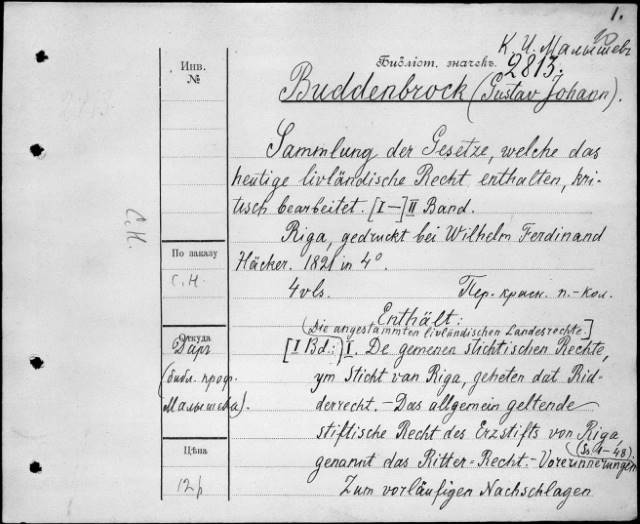 1.
К. И. Малышев
Библіот. значекъ.
2813.
Инв.
№
Buddenbrock (Gustav Johann).
Sammlung der Gesetze, welche das
heutige livländische Recht enthalten, kri-
tisch bearbeitet. [I—] II Band.
Riga, gedruckt bei Wilhelm Ferdinand
Häcker. 1821 in 4°.
4 vls. Пер. красн. п.-кол.
С.Н.
По заказу
С.Н.
Enthält:
(Die angestammten livländischen Landesrechte.]
Откуда
Даръ
(библ. проф.
Малышева).
[I Bd.:] I. De gemenen Stichtischen Rechte,
ym Sticht van Riga, geheten dat Rid-
derrecht. – Das allgemein geltende
stiftische Recht des Erzstifts von Riga,
genannt das Ritter-Recht.- Vorerinnerungen
48).
Zum vorläufigen Nachschlagen
Цѣна
12 р